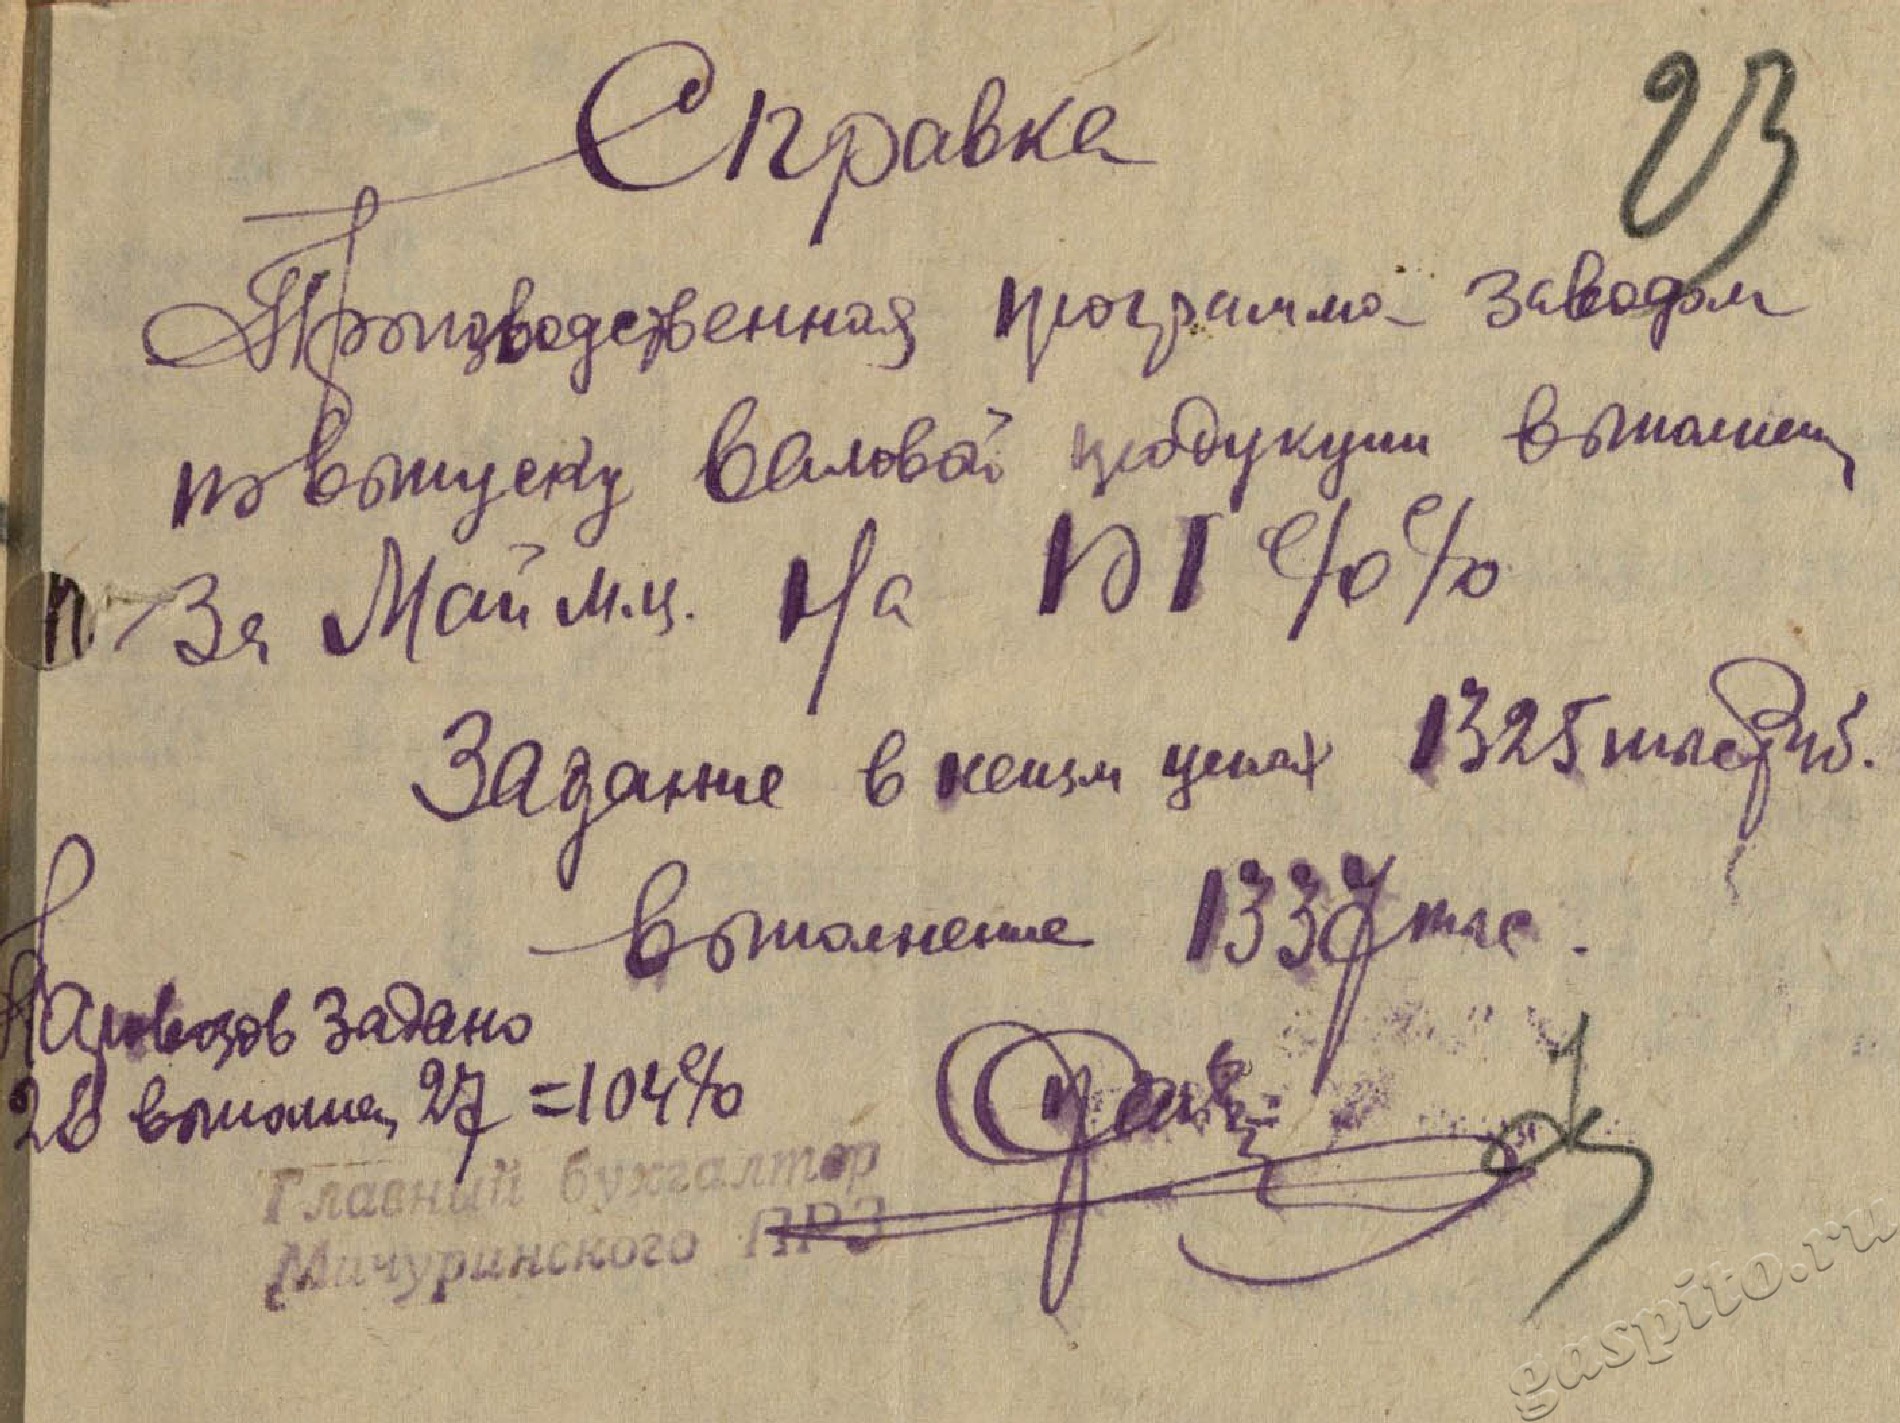 23
Справка
Производственная программа заводом
по выпуску валовой продукции выполнен
за Май м-ц. на 101 %%
Задание в неизм ценах 1325 тыс руб.
выполнение 1337 тыс.
Паровозов задано
26 выполнен 27 = 104%
Главный бухгалтер
Мичуринского ПРЗ
gaspito.ru